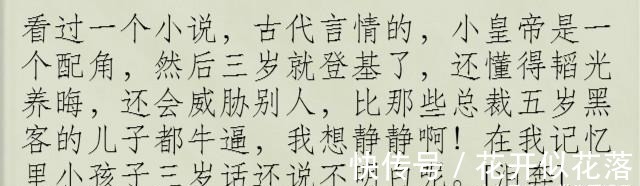 看过一个小说，古代言情的，小皇帝是一
个配角，然后三岁就登基了，还懂得韬光
养晦，还会威胁别人，比那些总裁五岁黑
客的儿子都牛逼，我想静静啊！在我记忆
里小孩子三岁话还说不明白呢。
快传号 / 花开似花落